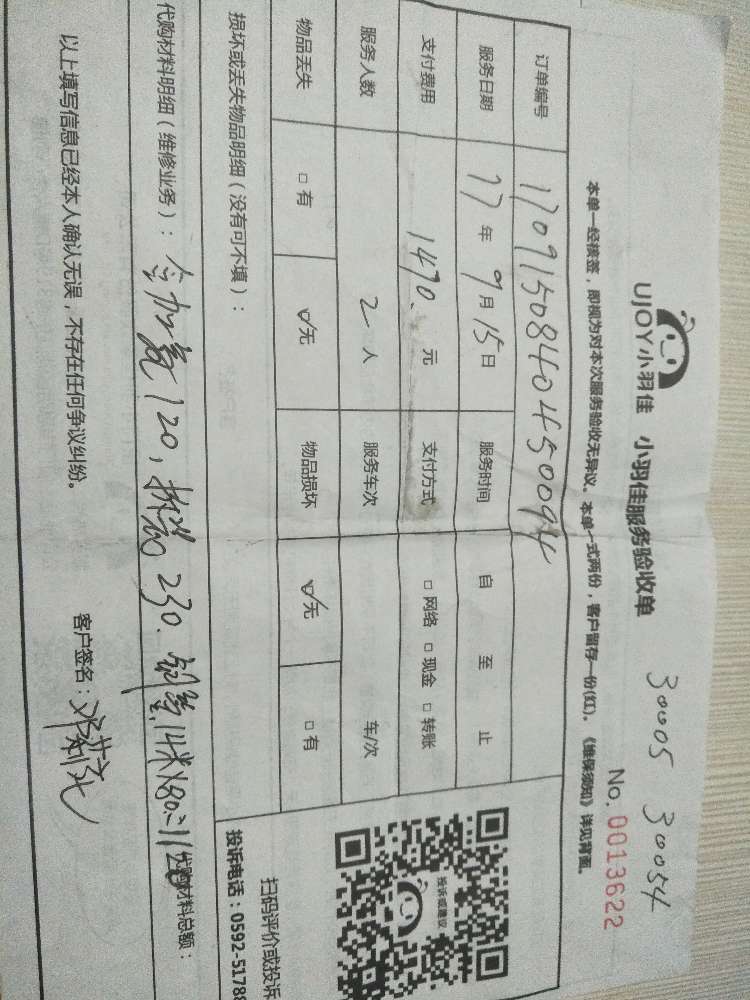 30005 30054
UJOY小羽佳 小羽佳服务验收单
No. 0013622
本单一经接签，即视为对本次服务验收无异议。本单一式两份，客户留存一份(红)。《维保须知》详见背面。
订单编号 1709150840450094
服务日期 17年9月15日 服务时间 自 至 止
支付费用 1470.元 支付方式 □网络 □现金 □转账
服务人数 2人 服务车次 车/次
物品丢失 □有 ☑无 物品损坏 ☑无 □有
损坏或丢失物品明细（没有可不填）：
投诉或建议
扫码评价或投诉
投诉电话：0592-5178
代购材料明细（维修业务）： 加氟120, 拆装230. 铜管14米×80=1120
代购材料总额：
以上填写信息已经本人确认无误，不存在任何争议纠纷。 客户签名：